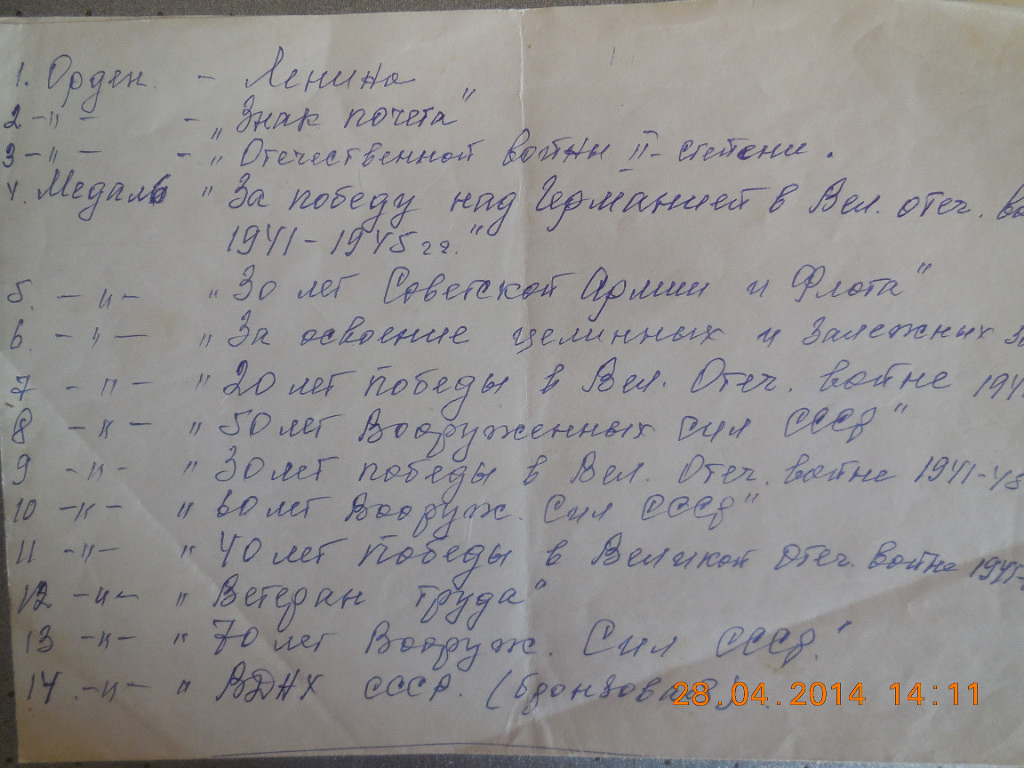 1. Орден - Ленина
2 -"- - „Знак почета"
3 -"- - „Отечественной войны II- степени.
4. Медаль „За победу над Германией в Вел. отеч.
1941-1945 гг."
5. -"- „30 лет Советской Армии и Флота"
6. -"- „За освоение целинных и залежных
7 -"- „20 лет победы в Вел. Отеч. войне
8 -"- „50 лет Вооруженных сил СССР"
9 -"- „30 лет победы в Вел. Отеч. войне 1941-45
10 -"- „60 лет Вооруж. Сил СССР"
11 -"- „40 лет победы в Великой Отеч. войне
12 -"- „Ветеран труда"
13 -"- „70 лет Вооруж. Сил СССР."
14 -"- „ВДНХ СССР. (бронзовая)
28.04.2014 14:11